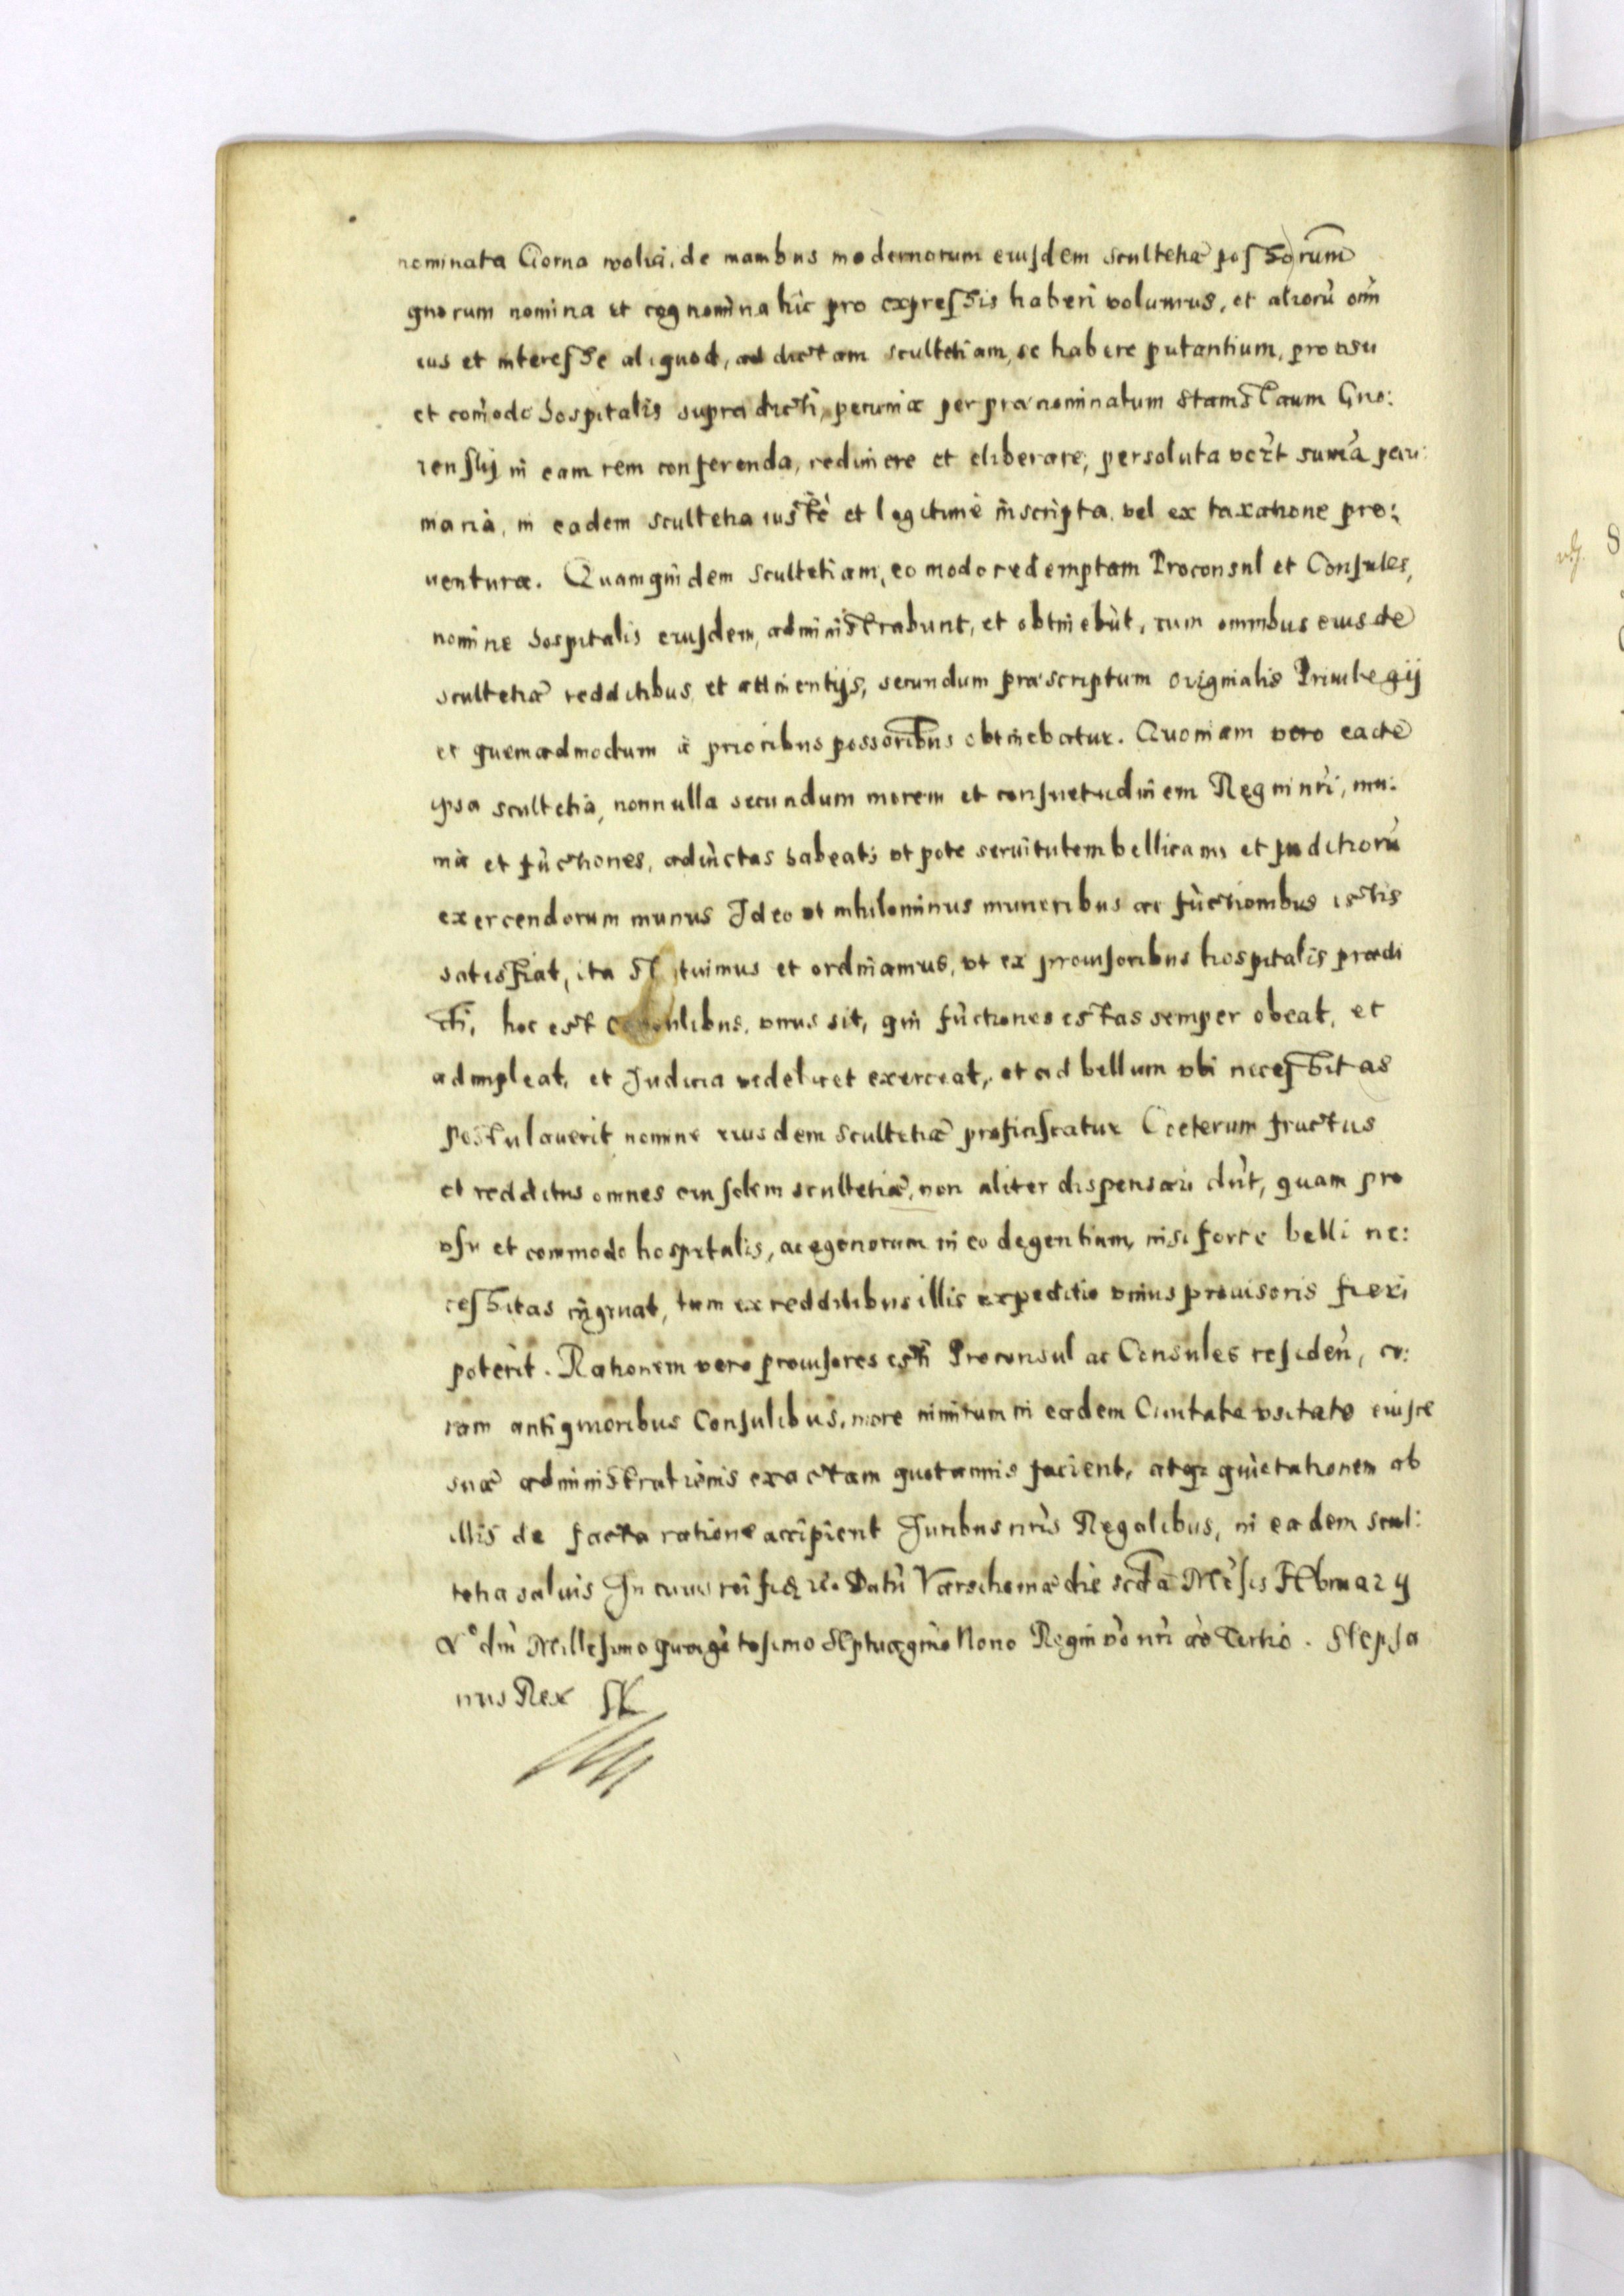 nominata Gorna wolia, de manibus modernorum eiusdem scultetiæ possorum
quorum nomina et cognomina hic pro expressis haberi volumus, et aliorũ om̃
ius et interesse aliquod, ad dictam scultetiam, se habere putantium, pro usu
et com̃odo hospitalis supra dicti, pecuniæ per prænominatum Stanislaum Gno:
ienskij in eam rem conferenda, redimere et eliberare, persoluta ver̃t sum̃a pecu:
niaria, in eadem scultetia iustè et legitimè inscripta, vel ex taxatione pro:
uenturæ. Quamquidem Scultetiam, eo modo redemptam Proconsul et Consules,
nomine hospitalis eiusdem, administrabunt, et obtinebũt, cum omnibus eiusdẽ
scultetiæ redditibus et attinentijs, secundum præscriptum originalis Priuilegij
et quemadmodum à prioribus possoribus obtinebatur. Quoniam vero eadẽ
ipsa scultetia, nonnulla secundum morem et consuetudinem Regni nr̃i, mu:
nia et fũctiones, adiũctas habeat, ut pote seruitutem bellicam, et juditiorũ
exercendorum munus Ideo ut nihilominus muneribus ac fũctionibus istis
satisfiat, ita statuimus et ordinamus, ut ex prouisoribus hospitalis prædi
cti, hoc est Consulibus, unus sit, qui fũctiones istas semper obeat, et
adimpleat, et Judicia videlicet exerceat, et ad bellum ubi necessitas
postulauerit nomine eiusdem Scultetiæ proficiscatur Cæterum fructus
et redditus omnes eiusdem scultetiæ, non aliter dispensari dñt, quam pro
usu et commodo hospitalis, ac egenorum in eo degentium, nisi forte belli ne:
cessitas ingruat, tum ex redditibus illis expeditio unius prouisoris fieri
poterit. Rationem vero prouisores isti Proconsul ac Consules residen̄, co:
ram antiquioribus Consulibus, more nimirum in eadem Ciuitate usitato
suæ administrationis exactam quotannis facient, atq; quietationem ab
illis de facta ratione accipient Juribus nr̃is Regalibus, in eadem scul:
tetia saluis In cuius rei fidẽ Datũ Varschouiæ die scd̃a Mẽsis Februarij
Aº dñi Millesimo quigẽtesimo Septuagmo Nono Regni vo nr̃i aõ Tertio. Stepha
nus Rex